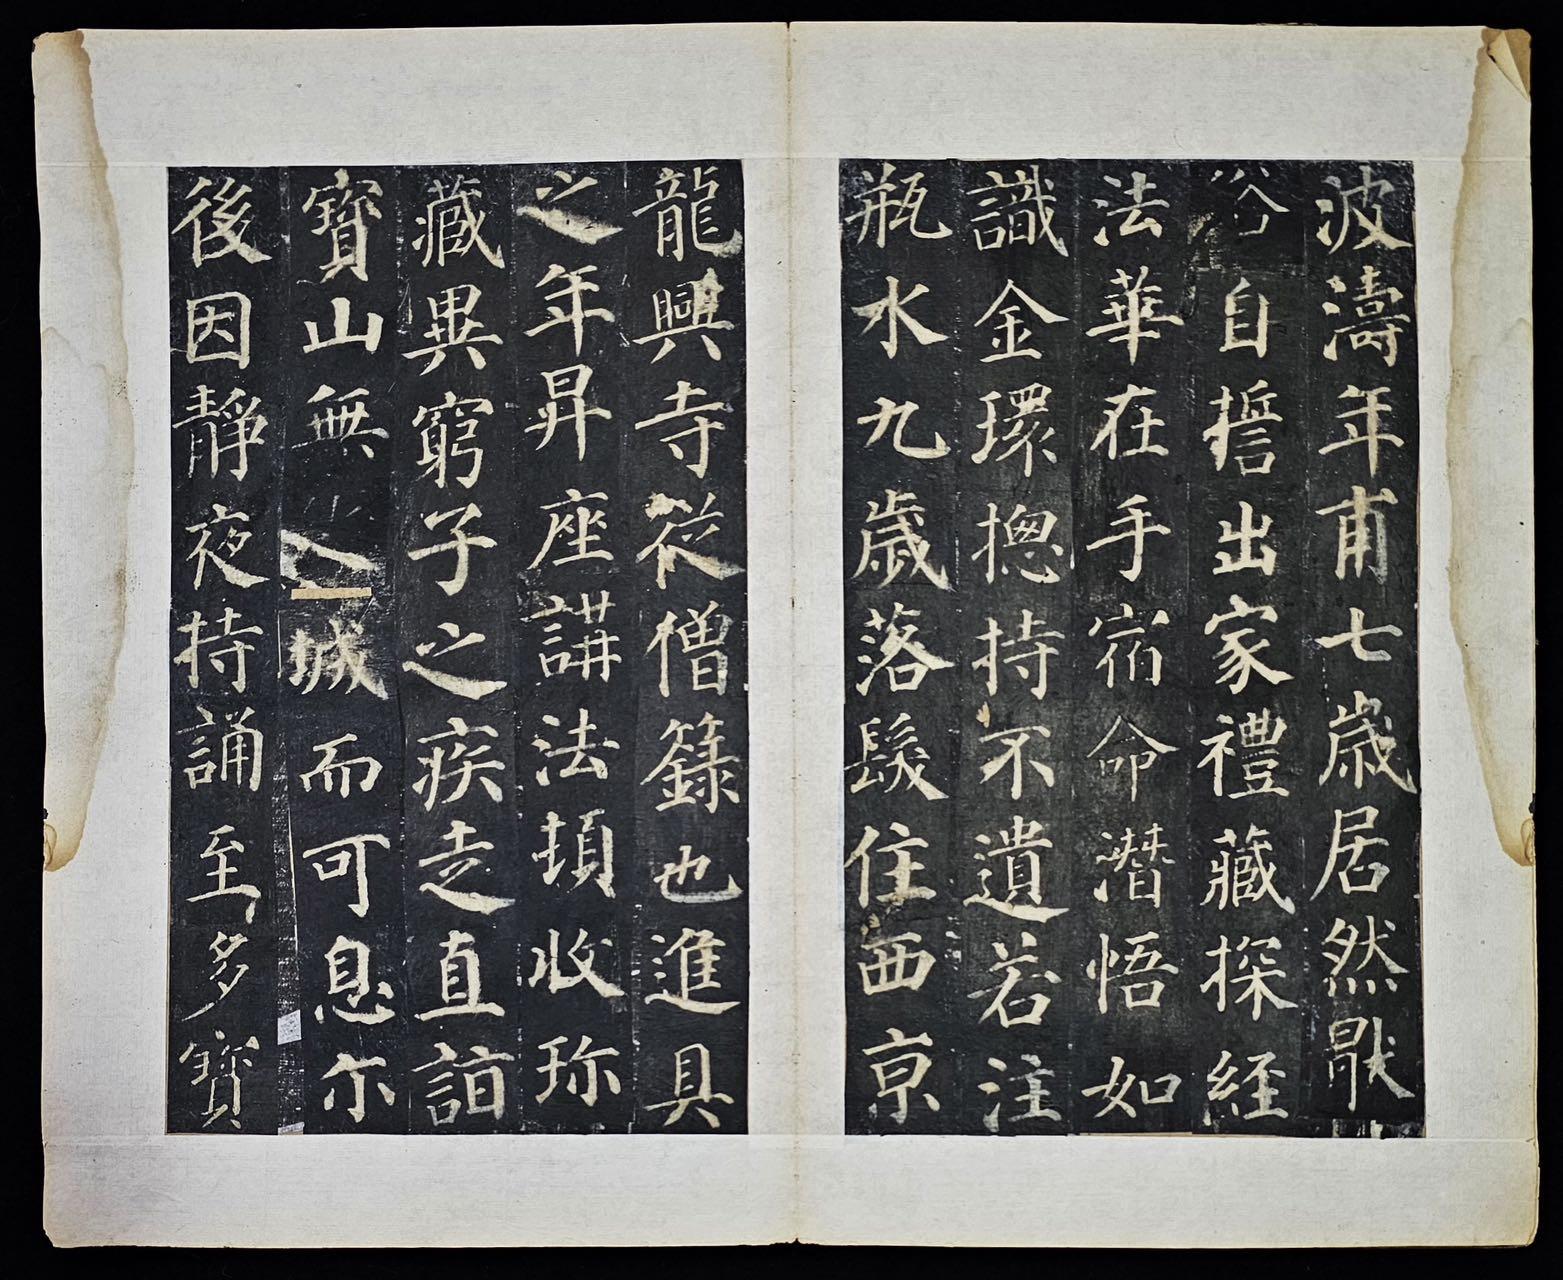 波濤年甫七歲居然猒
俗自誓出家禮藏探經
法華在手宿命潛悟如
識金環揔持不遺若注
瓶水九歲落髮住西京
龍興寺從僧籙也進具
之年昇座講法頓收珍
藏異窮子之疾走直詣
寶山無城而可息尔
後因靜夜持誦至多寶